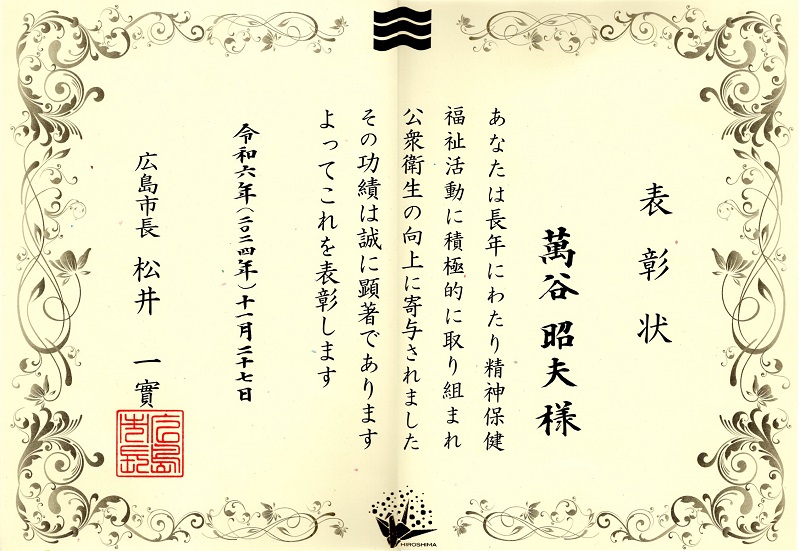 表彰状
萬谷 昭夫 様
あなたは長年にわたり精神保健
福祉活動に積極的に取り組まれ
公衆衛生の向上に寄与されました
その功績は誠に顕著であります
よってこれを表彰します
令和六年(二〇二四年)十一月二十七日
広島市長 松井 一實
広島
市長
HIROSHIMA